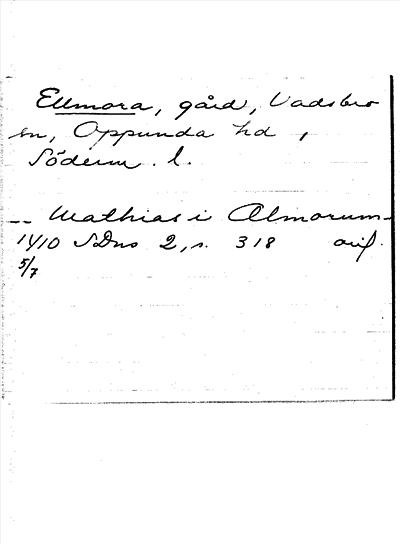 Ellmora, gård, Vadsbro
sn, Oppunda hd,
Söderm. l.
-- Mathias i Almorum
1410 SDns 2, s. 318 orig.
5/7